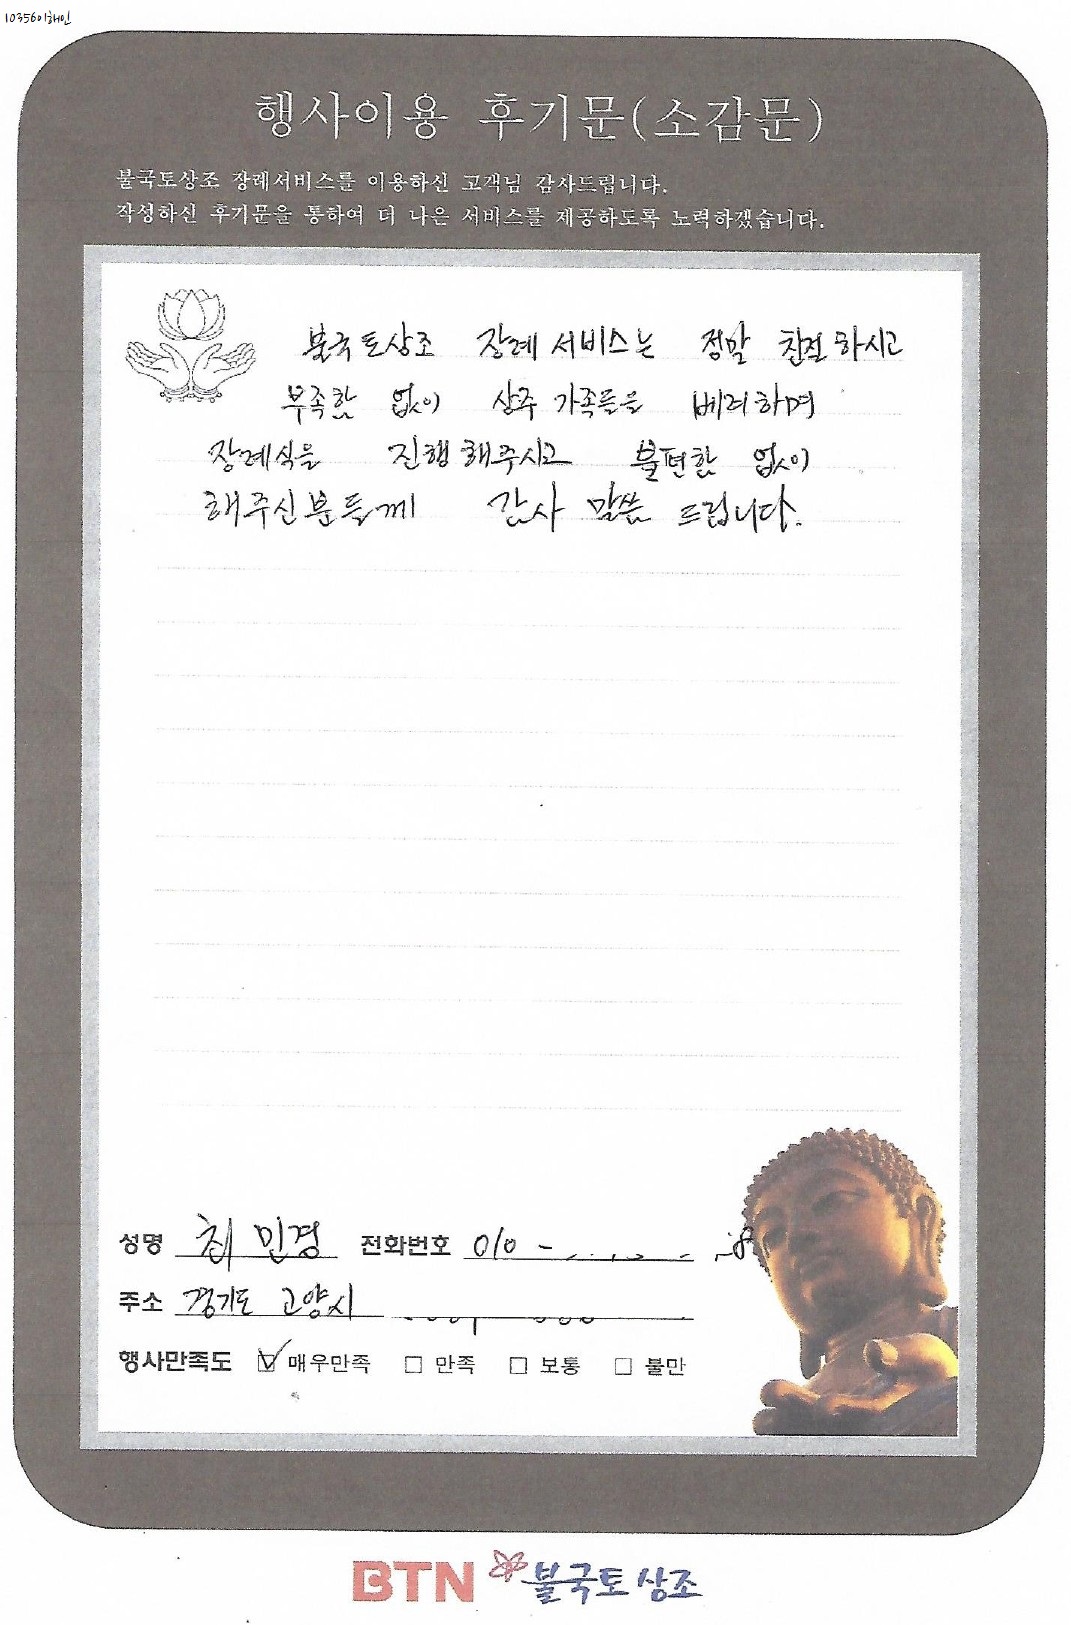 10356이해인
행사이용 후기문(소감문)
불국토상조 장례서비스를 이용하신 고객님 감사드립니다.
작성하신 후기문을 통하여 더 나은 서비스를 제공하도록 노력하겠습니다.
불국토상조 장례서비스는 정말 친절하시고
부족함 없이 상주 가족들을 배려하며
장례식을 진행해주시고 불편함 없이
해주신분들께 감사 말씀 드립니다.
성명 최민경 전화번호 010 -
주소 경기도 고양시
행사만족도 ☑ 매우만족 □ 만족 □ 보통 □ 불만
BTN 불국토상조